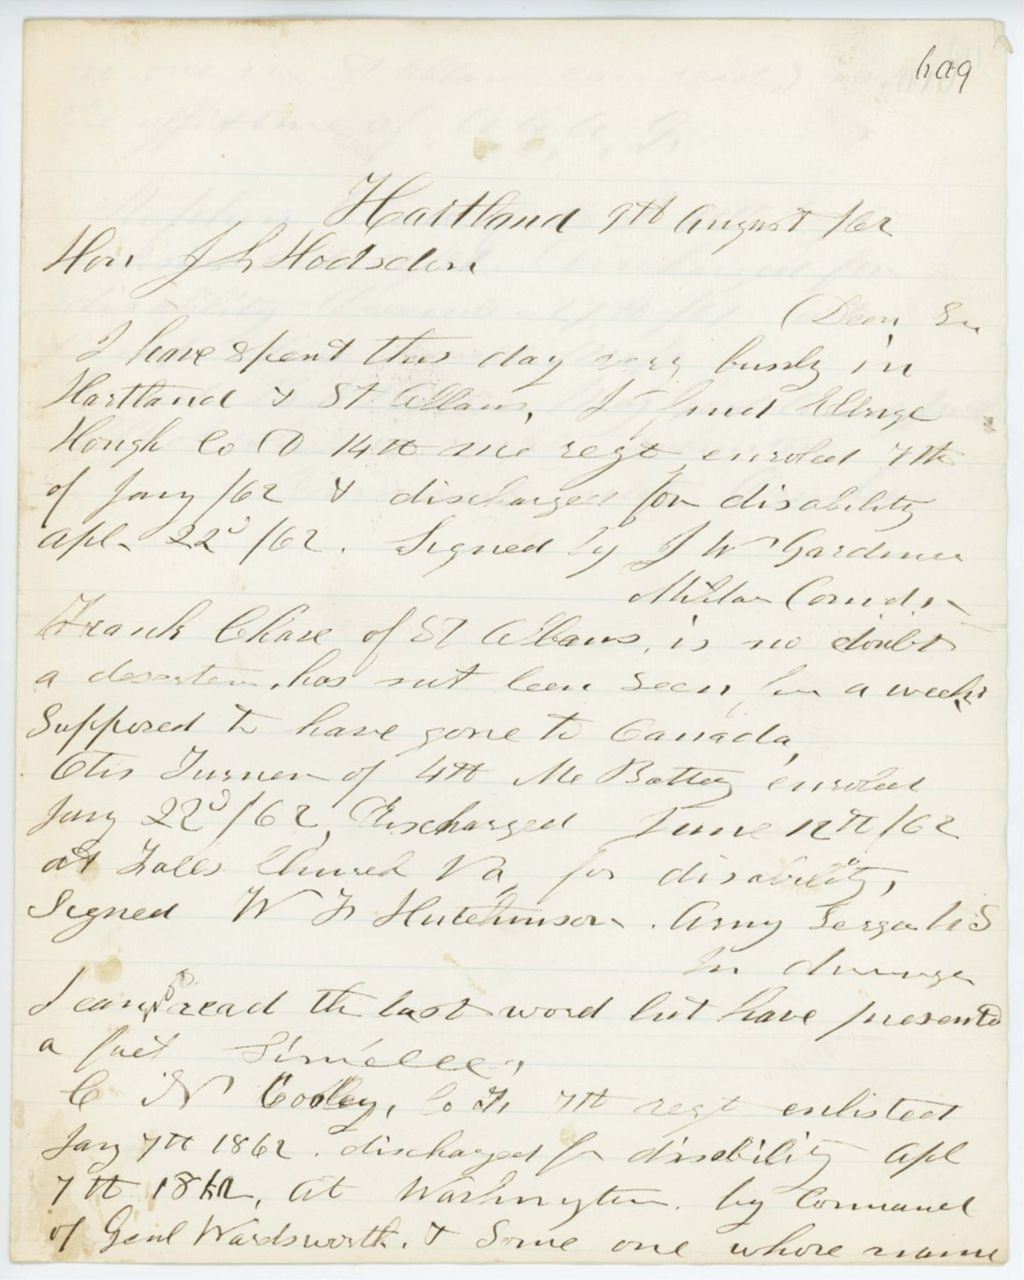 609
Hartland 9th August /62
Hon J L Hodsdon
Dear Sir
I have spent this day very busily in
Hartland & St Albans, I find
Hough Co D 14th Me regt enroled 7th
of Jany /62 & discharged for disability
Apl 22d /62. Signed by J W Gardiner
Comdr
Frank Chase of St Albans, is no doubt
a deserter, has not been seen for a week
Supposed to have gone to Canada,
Otis Turner of 4th Me Battey enroled
Jany 22d /62, Discharged June 12th /62
at Falls Church Va for disability,
Signed W F Hutchinson. Army Surgn US
In
I can read the last word but have presented
a fac Simelee,
C N Cooley, Co F, 7th regt enlisted
Jany 7th 1862. discharged for disibility Apl
7th 1862, at Washington. by Command
of Genl Wardsworth. & Some one whose name